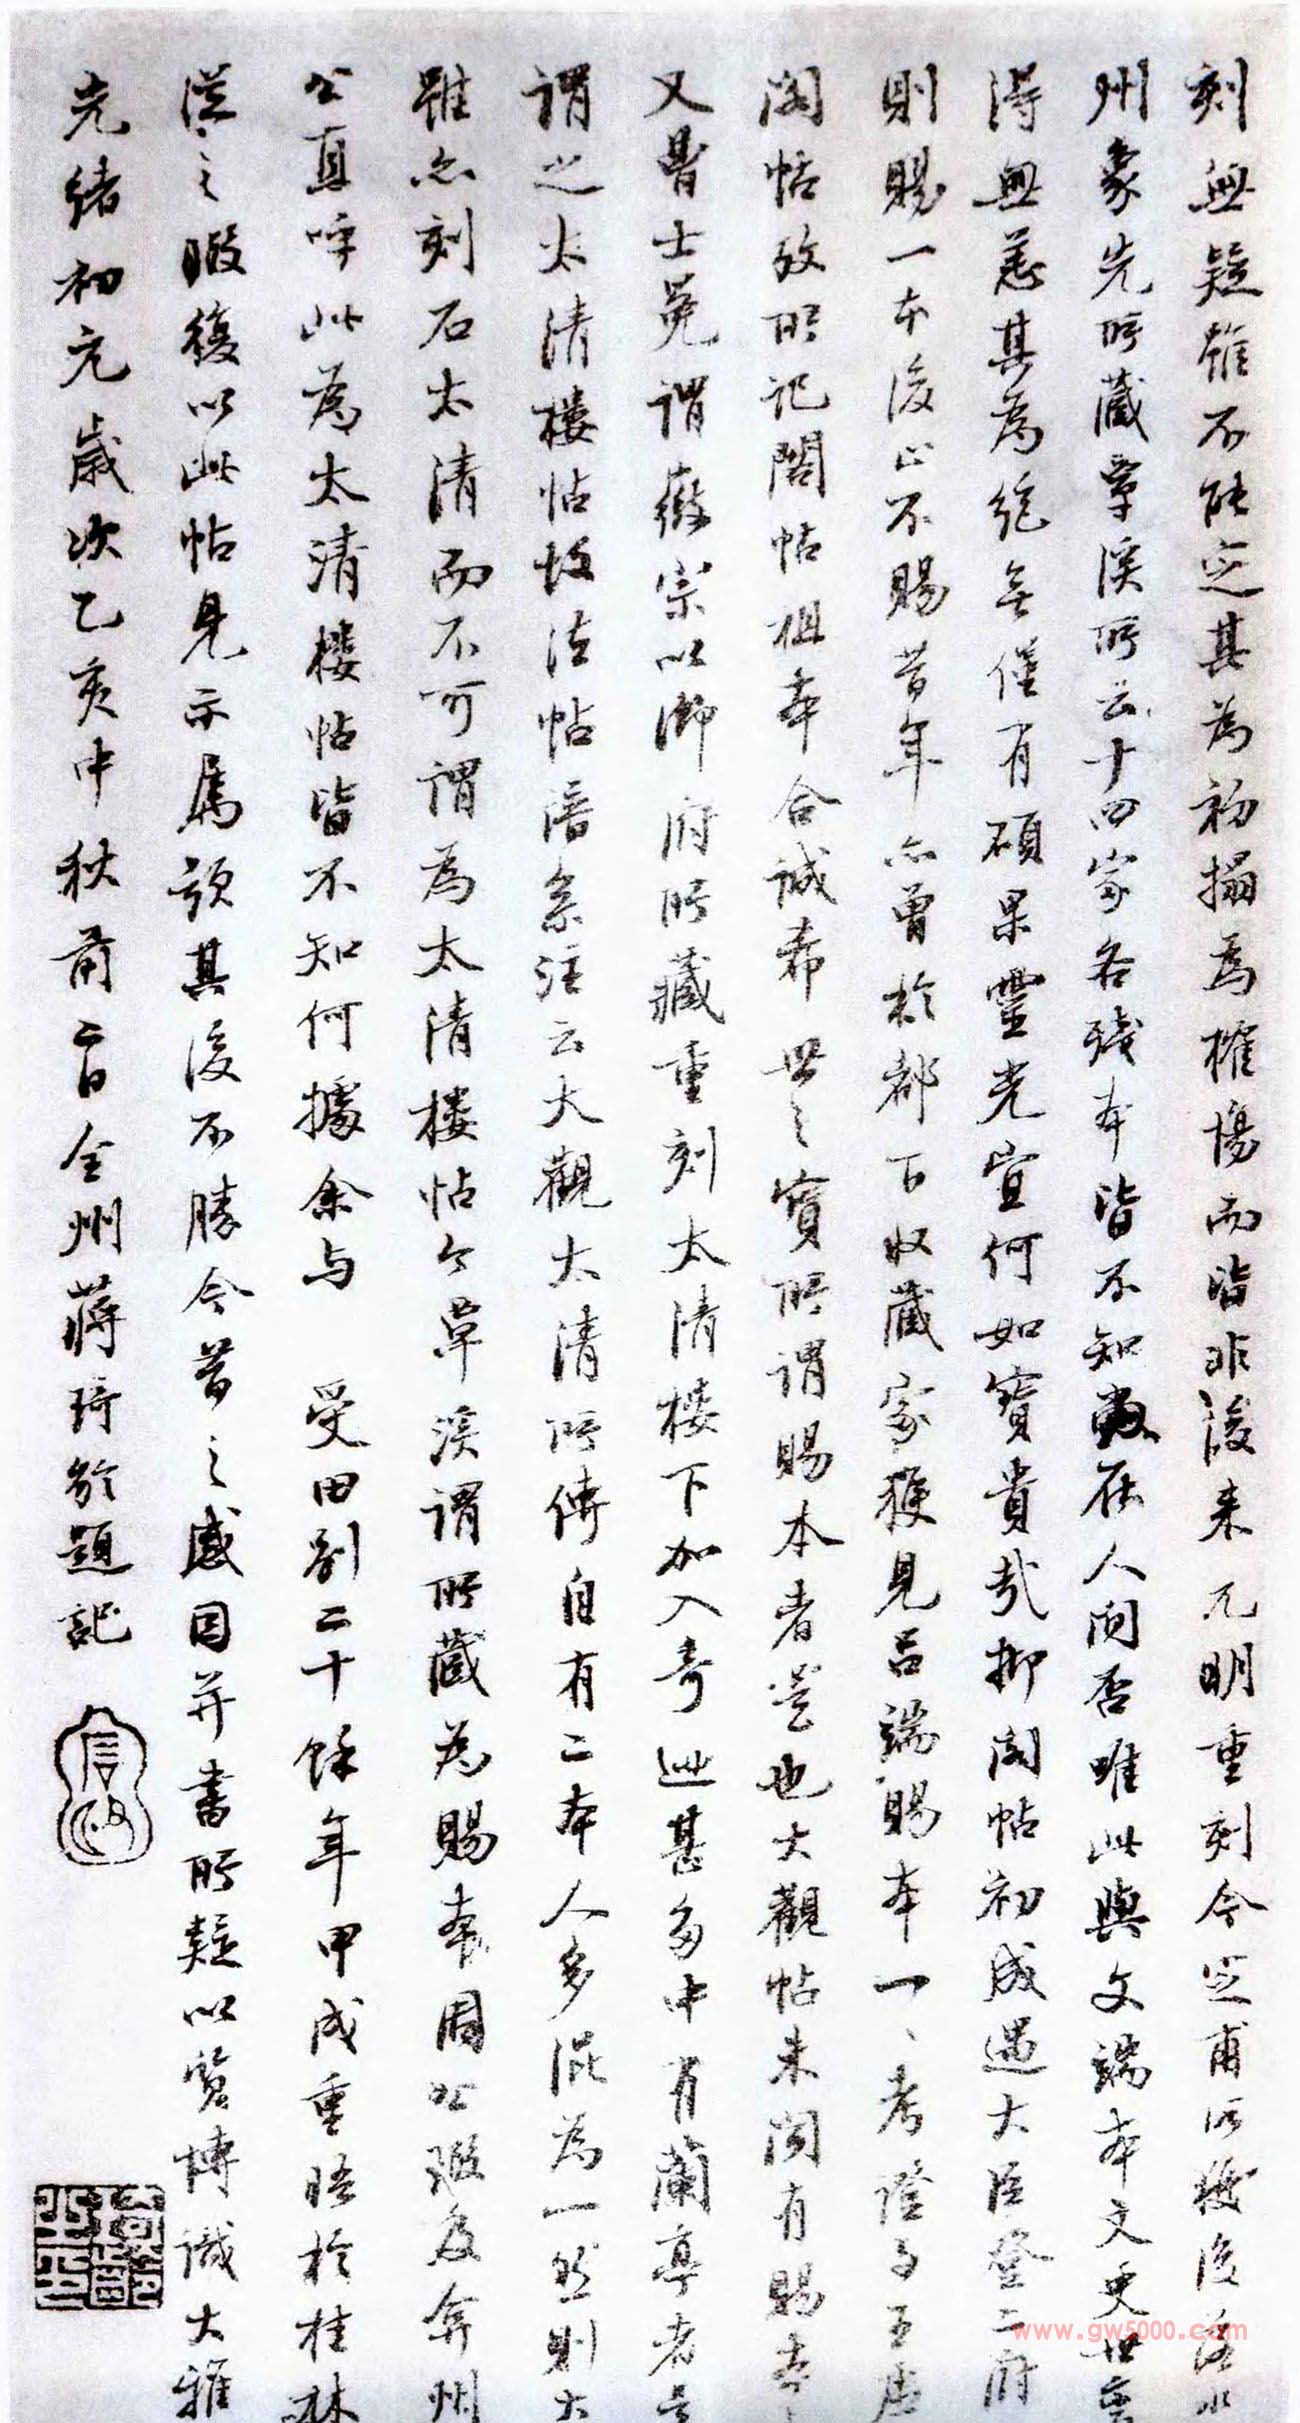 刻無疑雖不能定其為初搨為榷場而皆非後來元明重刻今芝甫所後落水
州象先所藏覃溪所云十四家各殘本皆不知尚在人間否唯此與文端本文史世
得無恙其為絕無僅有碩果靈光宜何如寶貴哉抑閣帖初成遇大臣登二府
則賜一本後止不賜昔年亦曾於都下收藏家獲見呂端賜本一一考證與王
閣帖攷所記閣帖祖本合誠希世之寶所謂賜本者是也大觀帖未聞有賜本
又曹士冕謂徽宗以御府所藏重刻太清樓下加入奇跡甚多中有蘭亭者
謂之太清樓帖故法帖譜系注云大觀太清所傳自有二本人多混為一然則大
雖亦刻石太清而不可謂為太清樓帖今覃溪謂所藏為賜本周公瑕及弇州
公直呼此為太清樓帖皆不知何據余与受田別二十餘年甲戌重晤於桂林
從之暇復以此帖見示屬題其後不勝今昔之感因并書所疑以質博識大雅
光緒初元歲次乙亥中秋前二日全州蔣琦齡題記
www.gw5000.com